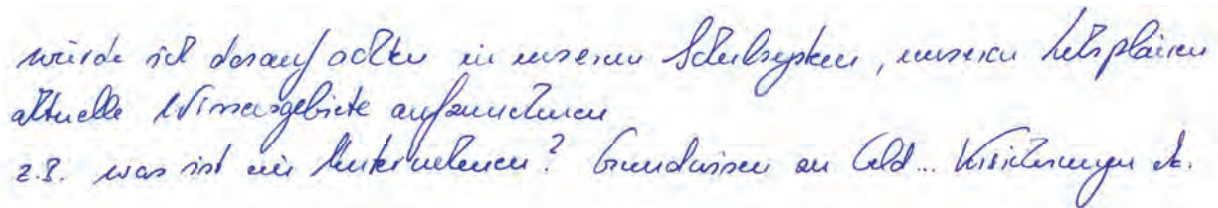 würde ich darauf achten in unserem Schulsystem, unseren Lehrplänen
aktuelle Wissensgebiete aufzunehmen
z.B. was ist ein Unternehmen? Grundwissen an Geld... Versicherungen etc.